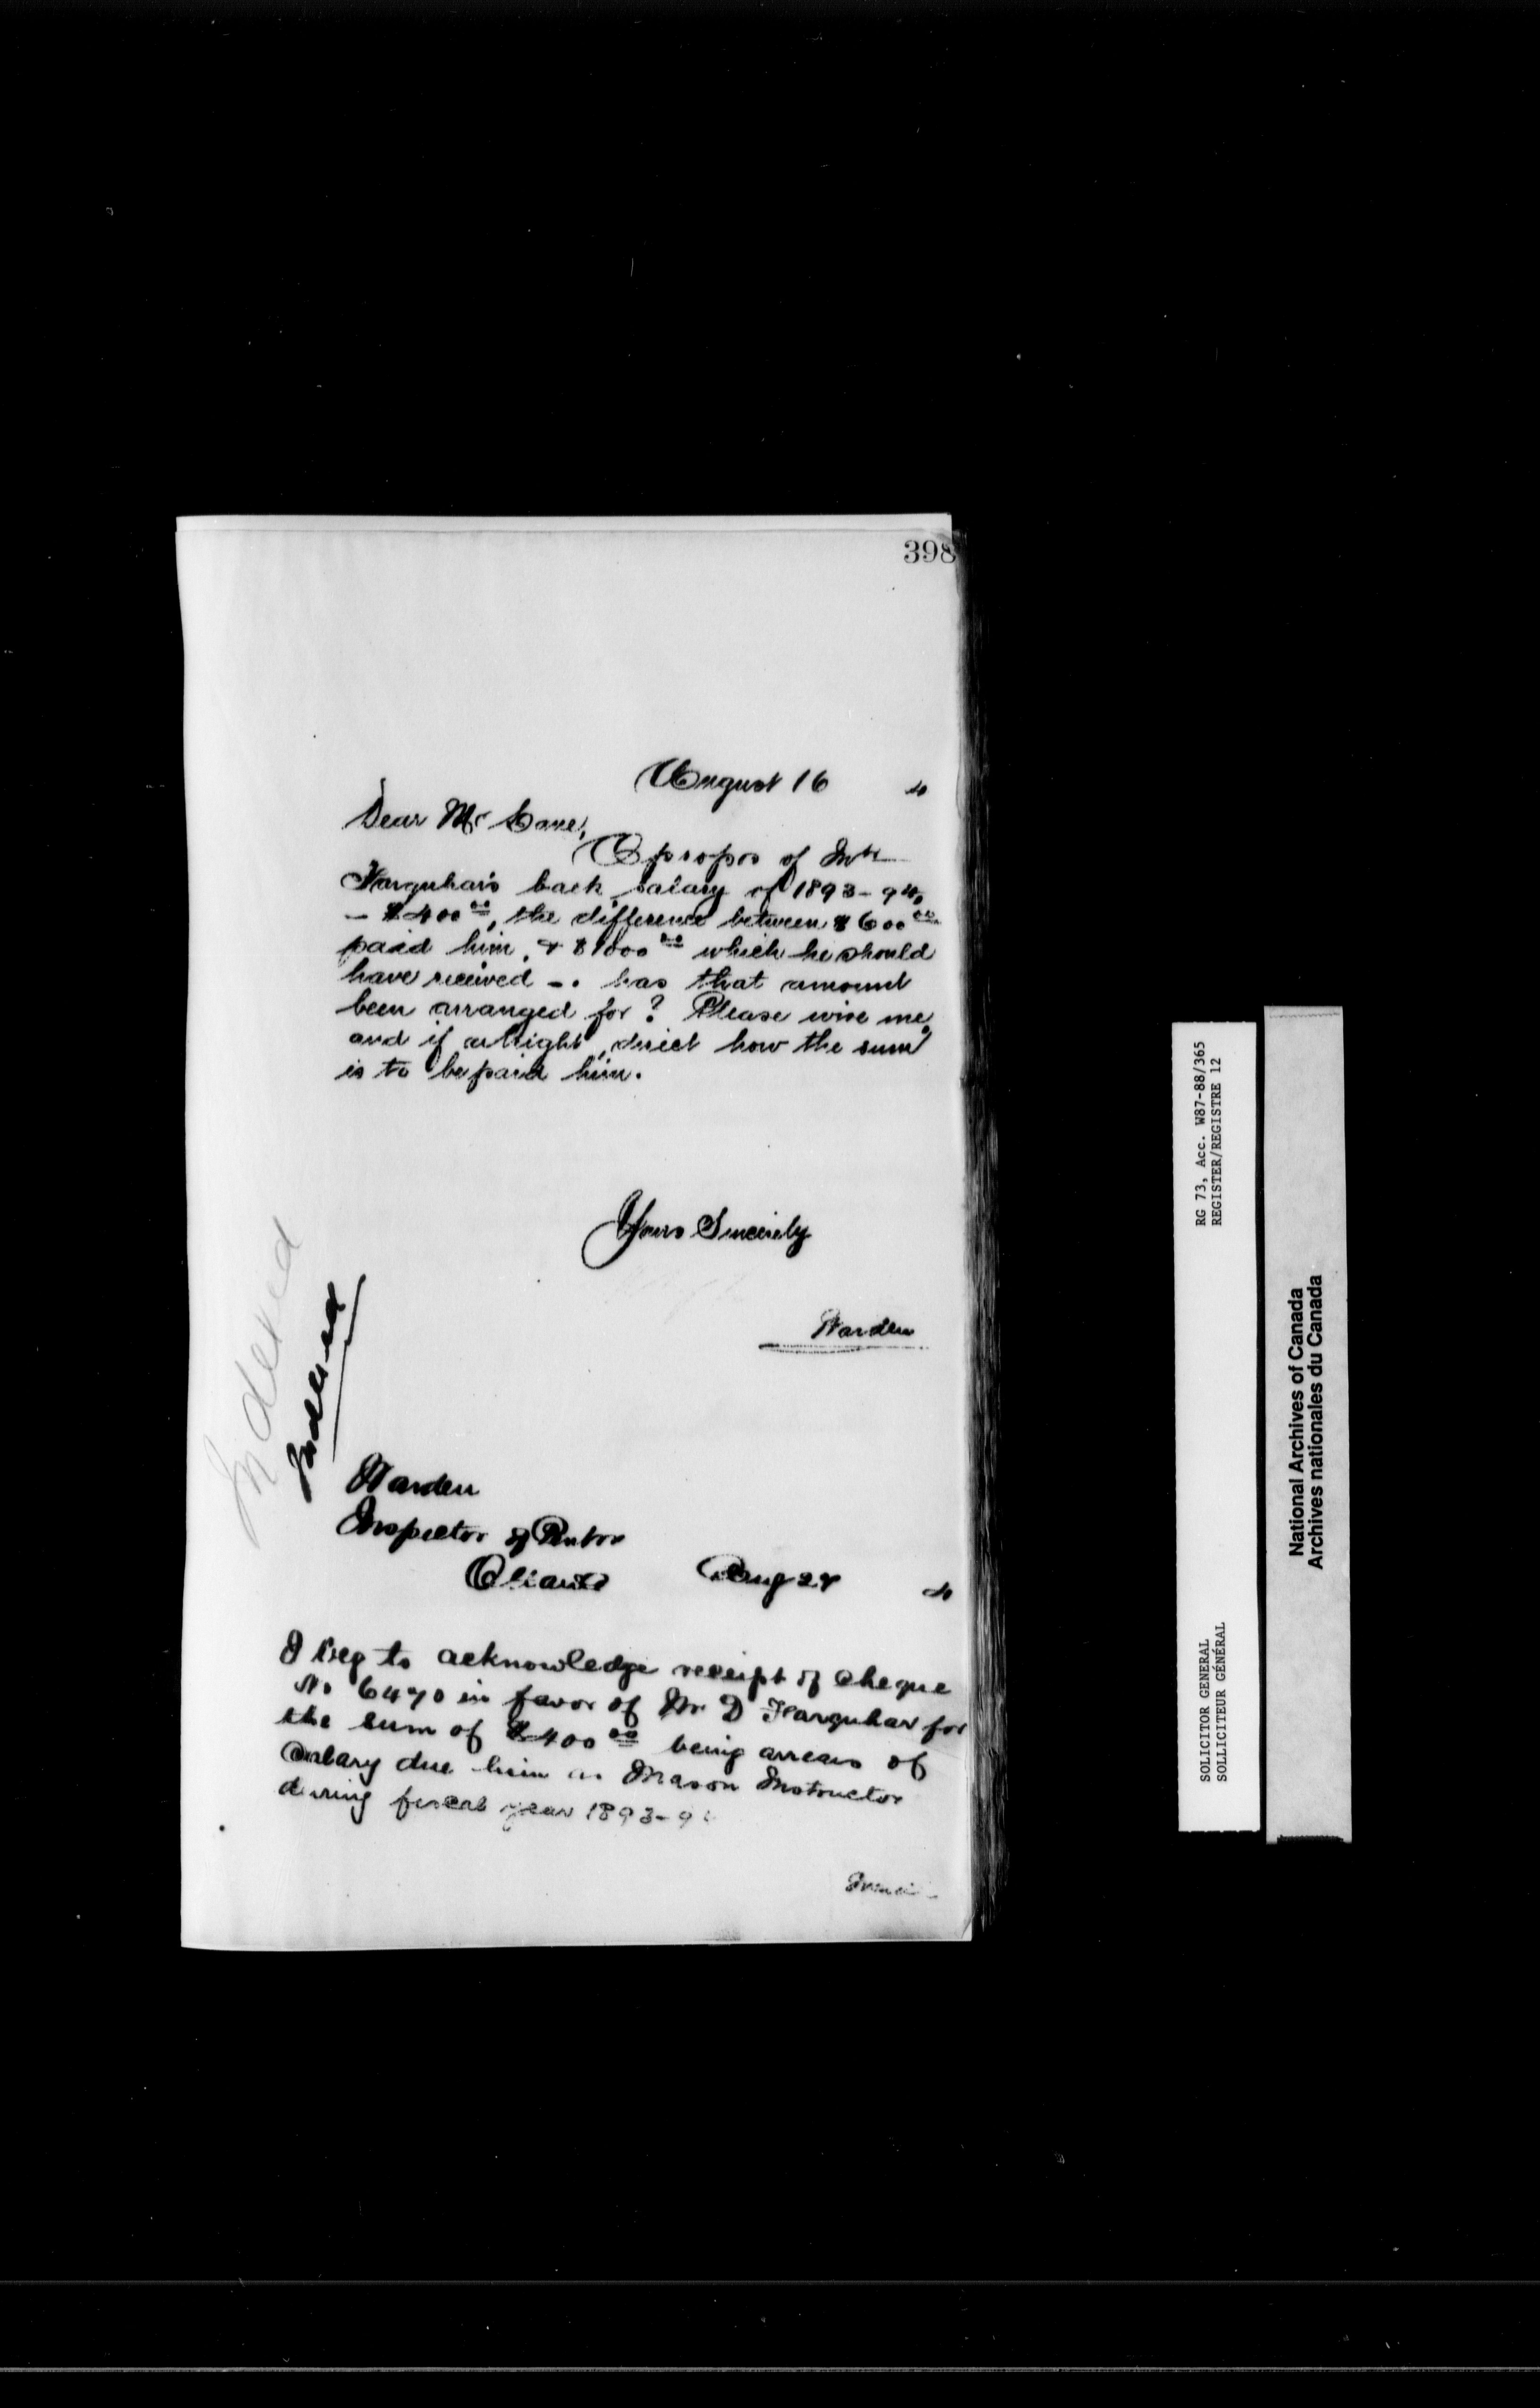 398
August 16 4
Dear Mr
Apropos of Mr
Farquhar's back salary of 1893-94,
- $400 00, the difference between $600 00
paid him, & $1000 00 which he should
have received -. has that amount
been arranged for? Please wire me,
and if allright, direct how the sum
is to be paid him.
Yours Sincerely
Warden
Indexed
Indexed
Warden
Inspector of Pentrs
Ottawa Aug 28 4
I beg to acknowledge receipt of cheque
No 6470 in favor of Mr D Farquhar for
the sum of $400 00 being arrears of
salary due him as Mason Instructor
during fiscal year 1893-94
RG 73, Acc. W87-88/365
REGISTER/REGISTRE 12
SOLICITOR GENERAL
SOLLICITEUR GÉNÉRAL
National Archives of Canada
Archives nationales du Canada